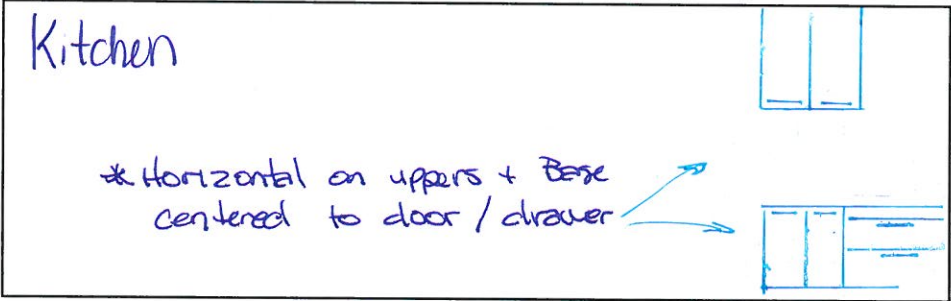 Kitchen
* Horizontal on uppers + Base
centered to door / drawer